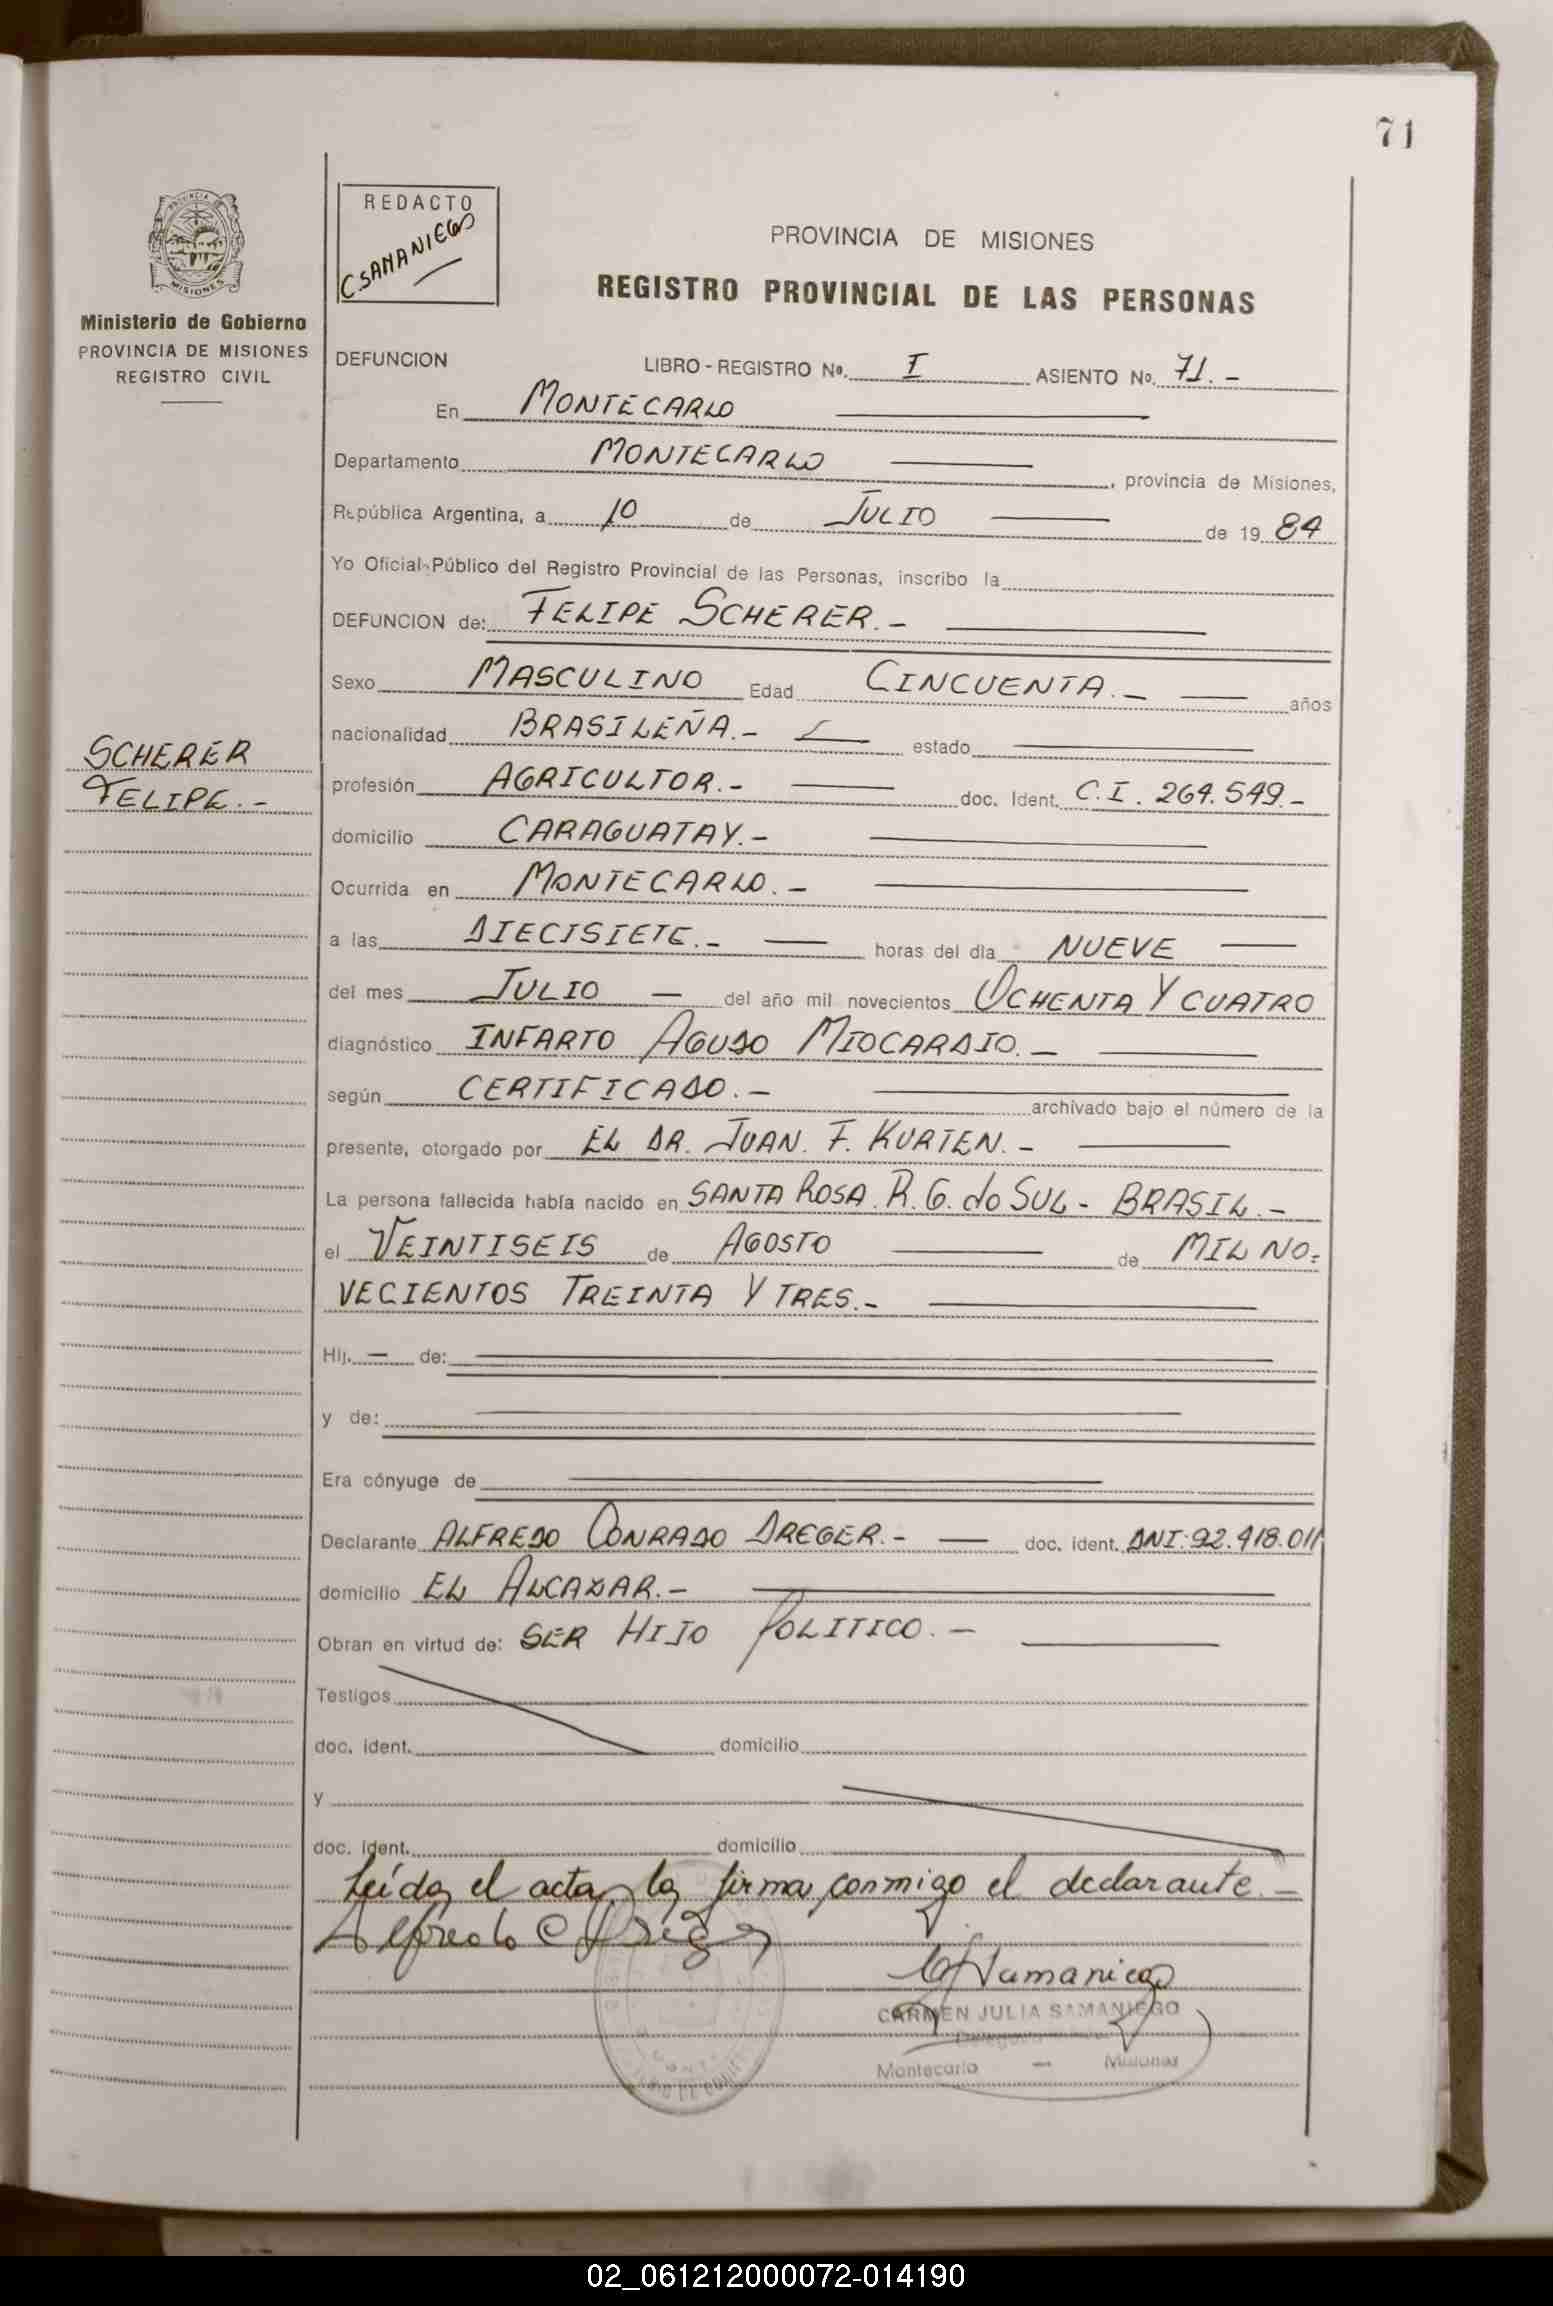 71
PROVINCIA
MISIONES
Ministerio de Gobierno
PROVINCIA DE MISIONES
REGISTRO CIVIL
SCHERER
FELIPE.-
REDACTO
C SAMANIEGO
PROVINCIA DE MISIONES
REGISTRO PROVINCIAL DE LAS PERSONAS
DEFUNCION LIBRO - REGISTRO Nº. I ASIENTO Nº. 71.-
En MONTECARLO
Departamento MONTECARLO, provincia de Misiones,
República Argentina, a 10 de JULIO de 19 84
Yo Oficial Público del Registro Provincial de las Personas, inscribo la
DEFUNCION de: FELIPE SCHERER.-
Sexo MASCULINO Edad CINCUENTA.- años
nacionalidad BRASILEÑA.- estado
profesión AGRICULTOR.- doc. Ident. C.I. 264.549.-
domicilio CARAGUATAY.-
Ocurrida en MONTECARLO.-
a las DIECISIETE.- horas del día NUEVE
del mes JULIO - del año mil novecientos OCHENTA Y CUATRO
diagnóstico INFARTO AGUDO MIOCARDIO.-
según CERTIFICADO.- archivado bajo el número de la
presente, otorgado por EL DR. JUAN. F. KURTEN.-
La persona fallecida había nacido en SANTA ROSA. R. G. do SUL - BRASIL.-
el VEINTISEIS de AGOSTO de MIL NO=
VECIENTOS TREINTA Y TRES.-
Hij. - de:
y de:
Era cónyuge de
Declarante ALFREDO CONRADO DREGER.- doc. ident. DNI:92.418.011
domicilio EL ALCAZAR.-
Obran en virtud de: SER HIJO POLITICO.-
Testigos
doc. ident. domicilio
y
doc. ident. domicilio
Leída el acta, la firma conmigo el declarante.-
Alfredo C Dreger
CJSamaniego
CARMEN JULIA SAMANIEGO
Montecarlo - Misiones
02_061212000072-014190